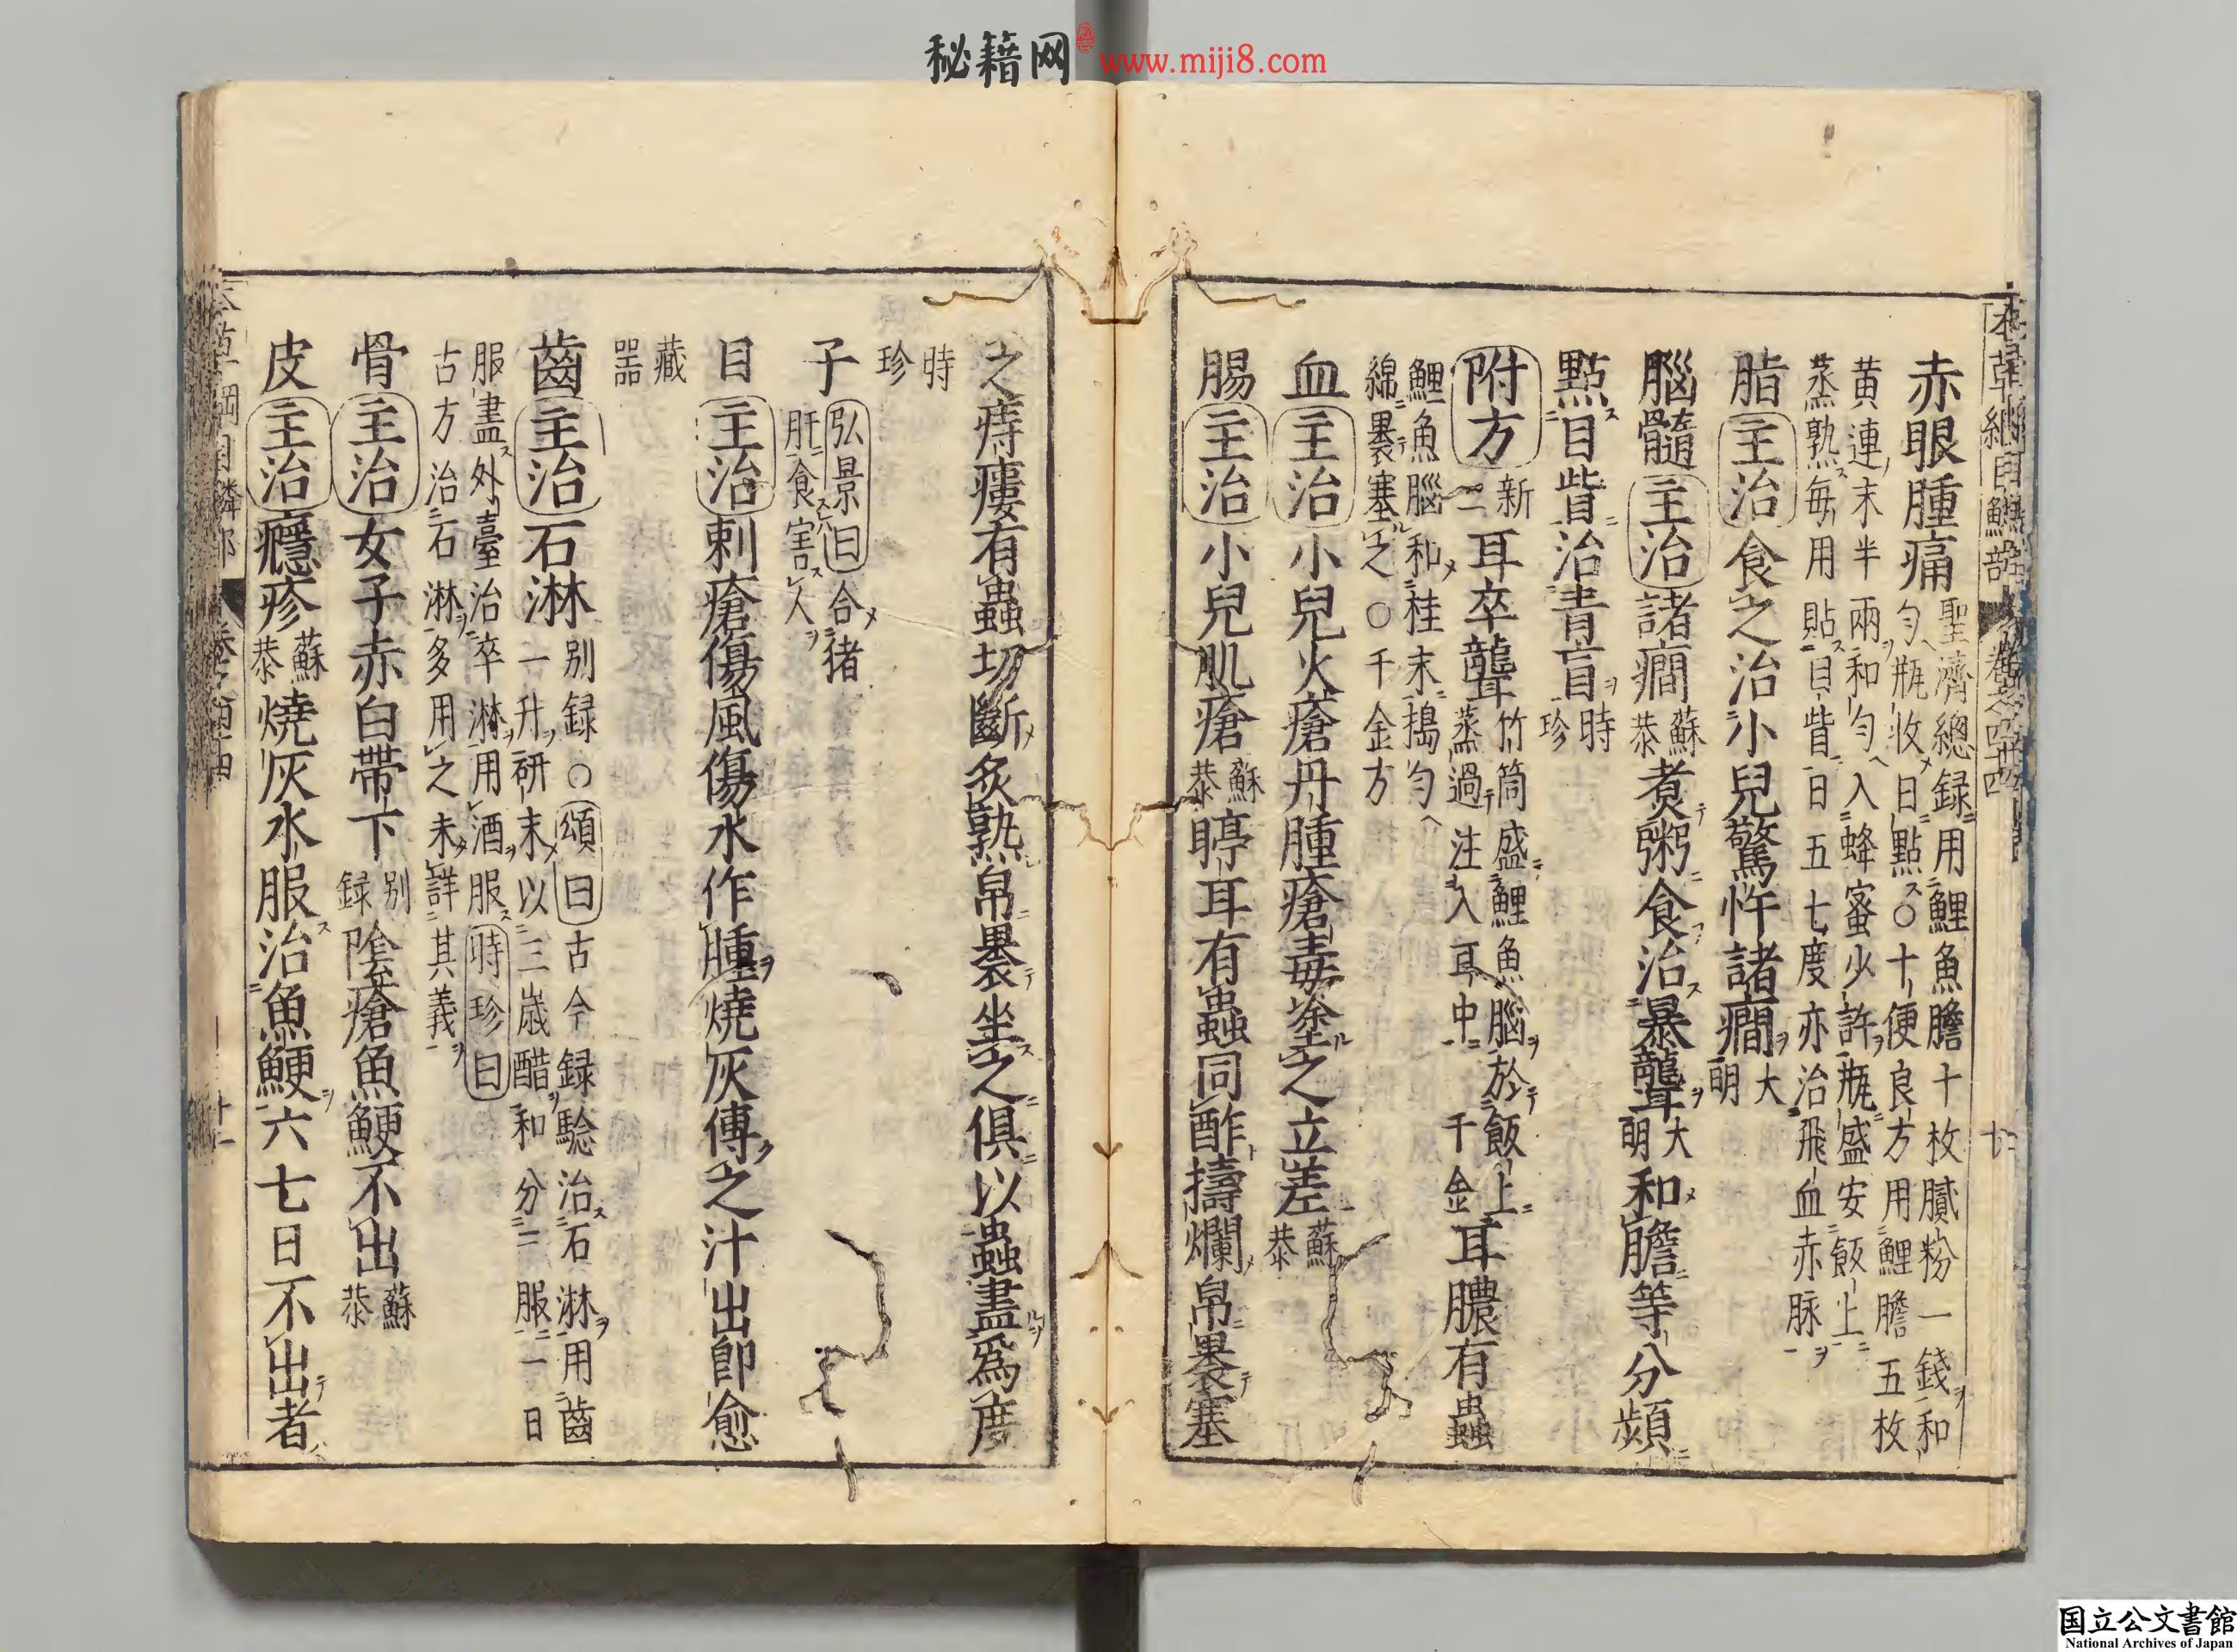 秘籍网 www.miji8.com
赤眼腫痛 聖濟總録用鯉魚膽十枚膩粉一錢和
勻瓶收日點○十便良方用鯉膽五枚
黄連末半兩和勻入蜂蜜少許瓶盛安飯上
蒸熟每用貼目眥日五七度亦治飛血赤脉
脂 主治 食之治小兒驚忤諸癇 大明
腦髓 主治 諸癇 蘇恭 煮粥食治暴聾 大明 和膽等分頻
點目眥治青盲 時珍
附方 新二 耳卒聾 竹筒盛鯉魚腦於飯上
蒸過注入耳中 千金 耳膿有蟲
鯉魚腦和桂末搗勻
綿裹塞之○千金方
血 主治 小兒火瘡丹腫瘡毒塗之立差 蘇恭
腸 主治 小兒肌瘡 蘇恭 聤耳有蟲同酢擣爛帛裹塞
之痔瘻有蟲切斷炙熟帛裹坐之俱以蟲盡爲度
時珍
子 弘景曰合猪
肝食害人
目 主治 刺瘡傷風傷水作腫燒灰傅之汁出卽愈
藏器
齒 主治 石淋 别録○頌曰古今録騐治石淋用齒
一升研末以三歳醋和分二服一日
服盡外臺治卒淋用酒服時珍曰
古方治石淋多用之未詳其義
骨 主治 女子赤白帶下 别録 陰瘡魚鯁不出 蘇恭
皮 主治 癮疹 蘇恭 燒灰水服治魚鯁六七日不出者
国立公文書館
National Archives of Japan